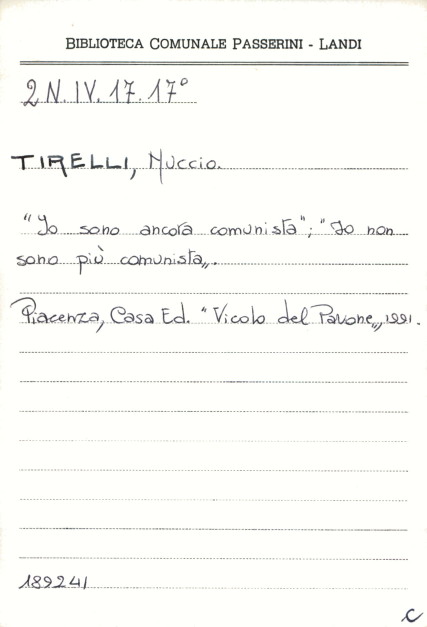 BIBLIOTECA COMUNALE PASSERINI - LANDI
2 N. IV. 17. 17°
TIRELLI, Nuccio.
"Io sono ancora comunista"; "Io non
sono più comunista„.
Piacenza, Casa Ed. "Vicolo del Pavone„, 1991.
189241
C